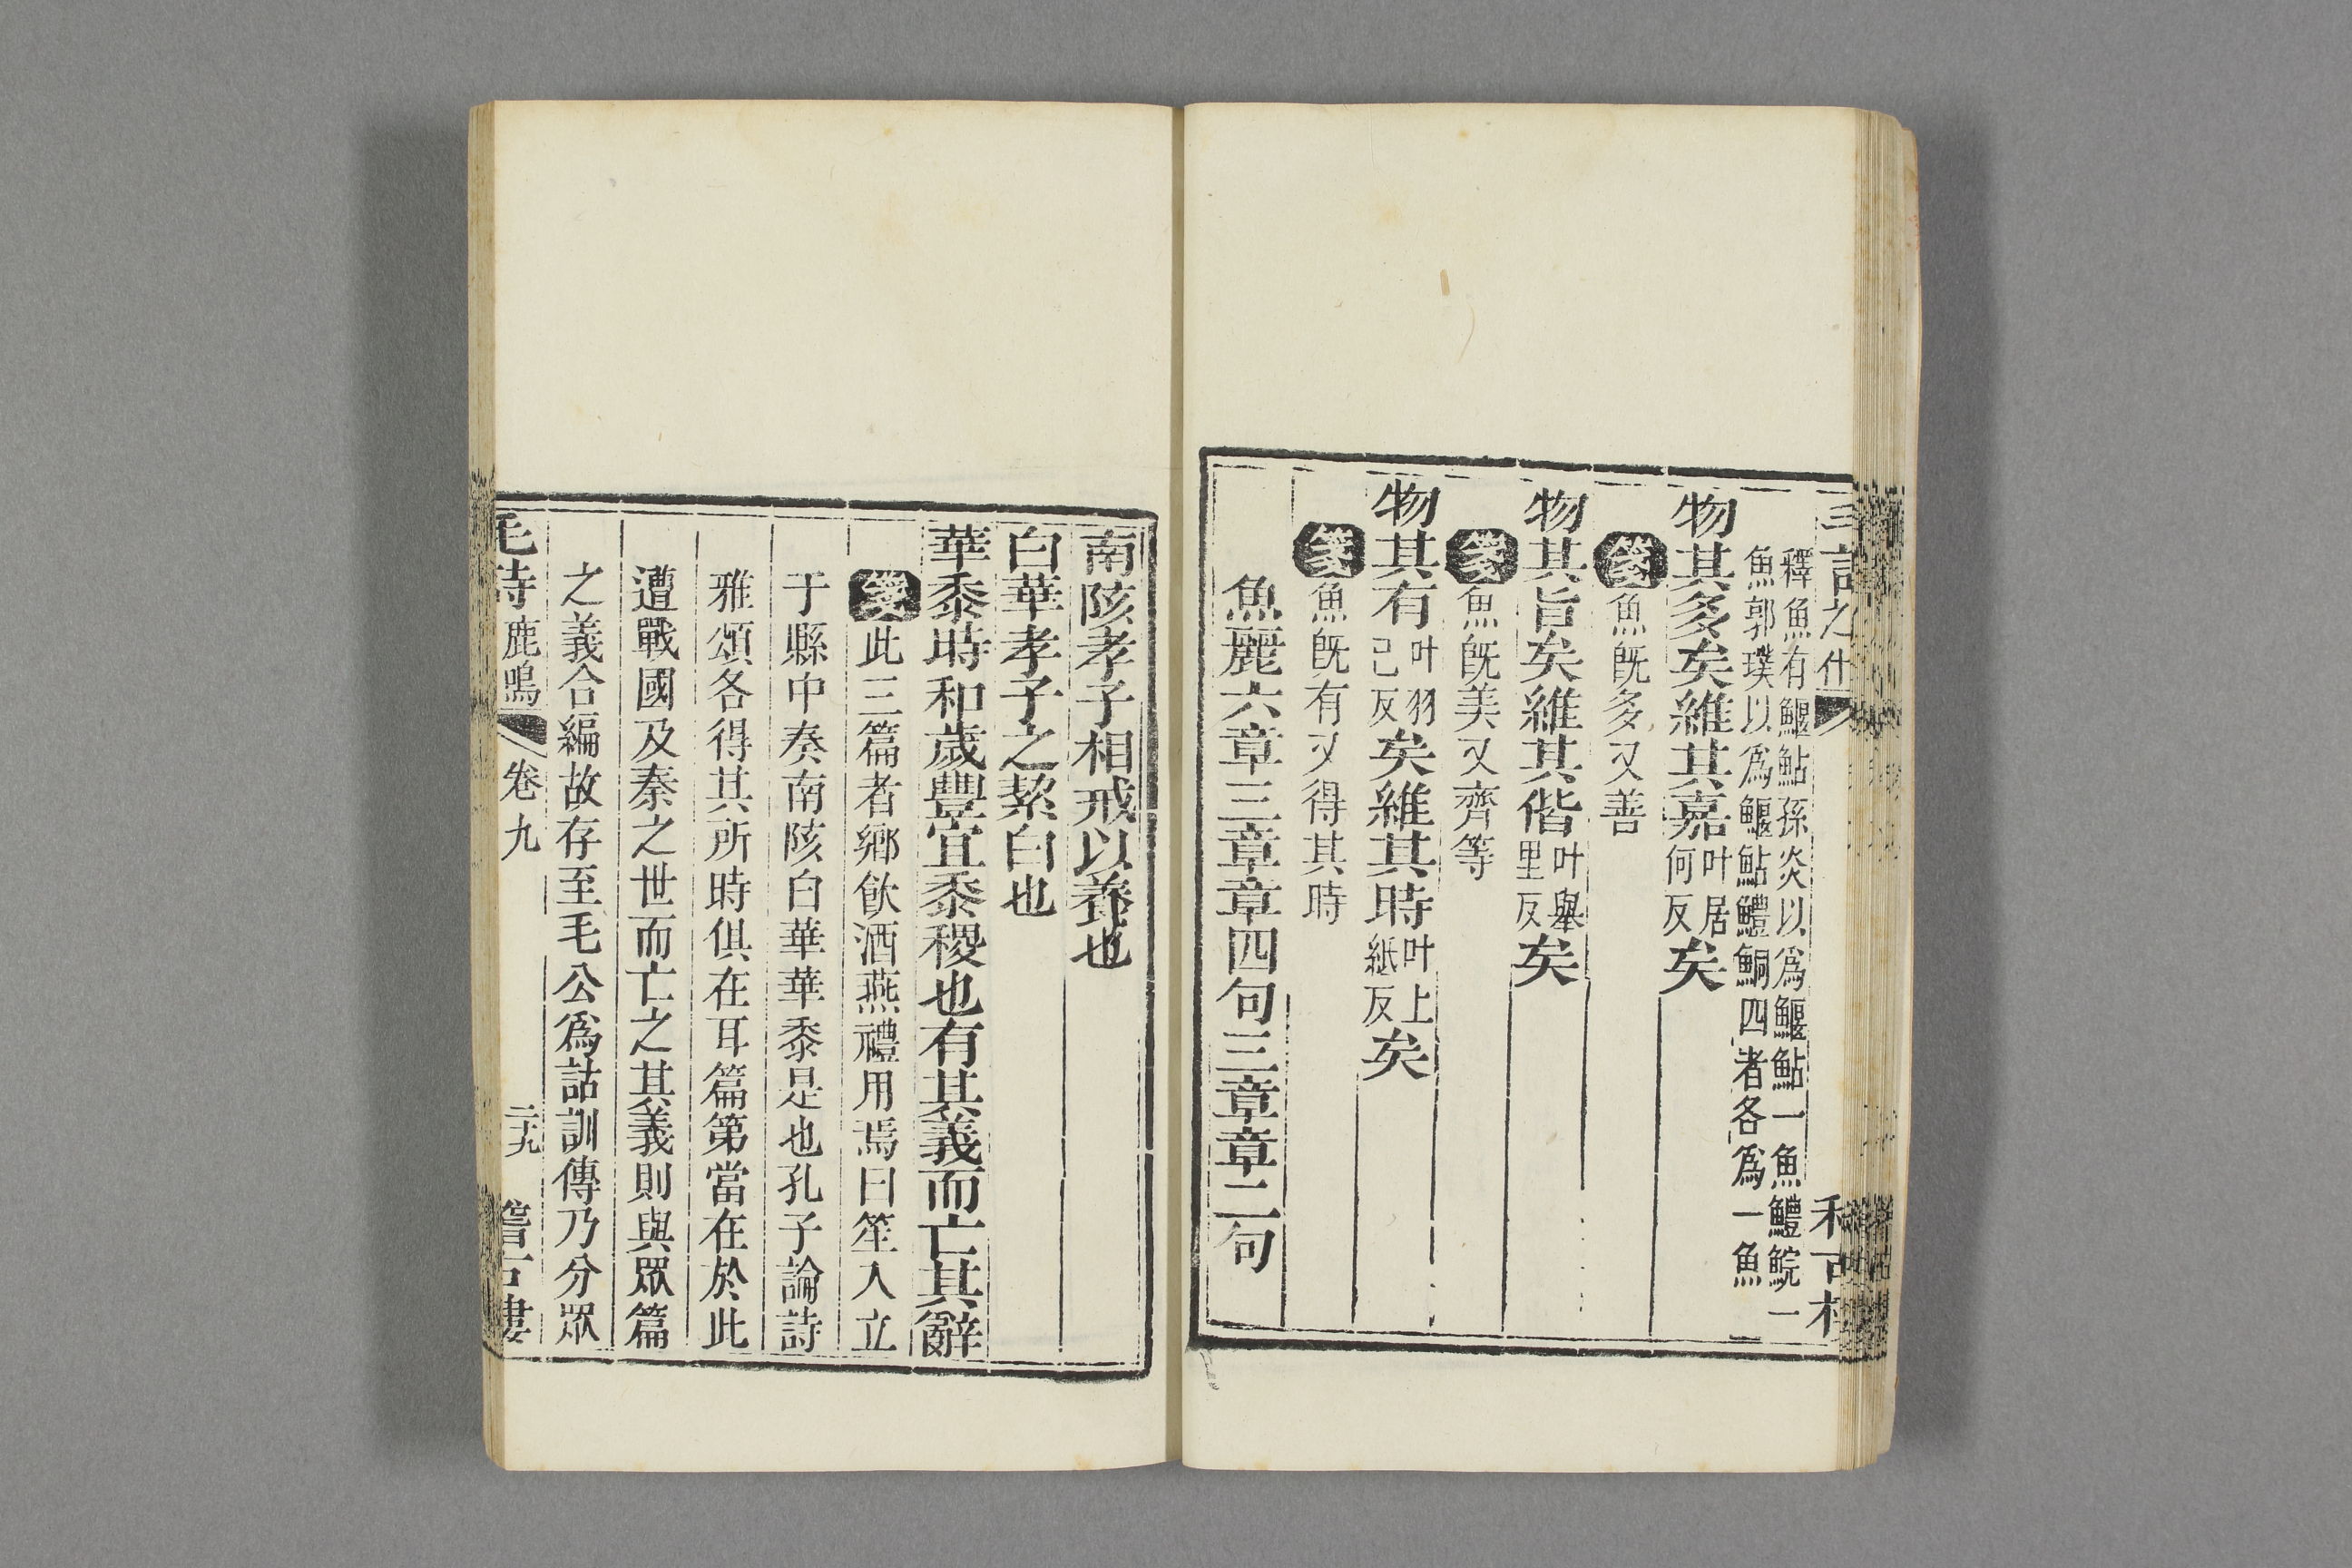 釋魚有鰋鮎孫炎以爲鰋鮎一魚鱧鯇一
魚郭璞以爲鰋鮎鱧鮦四者各爲一魚
物其多矣維其嘉叶居何反矣
箋魚旣多又善
物其旨矣維其偕叶舉里反矣
箋魚旣美又齊等
物其有叶羽己反矣維其時叶上紙反矣
箋魚旣有又得其時
魚麗六章三章章四句三章章二句
南陔孝子相戒以養也
白華孝子之絜白也
華黍時和歲豐宜黍稷也有其義而亡其辭
箋此三篇者鄉飲酒燕禮用焉曰笙入立
于縣中奏南陔白華華黍是也孔子論詩
雅頌各得其所時俱在耳篇第當在於此
遭戰國及秦之世而亡之其義則與眾篇
之義合編故存至毛公爲詁訓傳乃分眾
毛詩鹿鳴 卷九 二十九